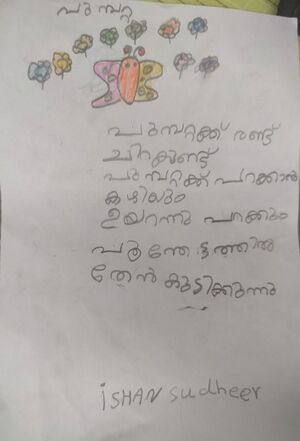 പൂമ്പാറ്റ
പൂമ്പാറ്റക്ക് രണ്ട്
ചിറകുണ്ട്
പൂമ്പാറ്റക്ക് പറക്കാൻ
കഴിയും
ഉയറന്നു പറക്കും
പൂന്തോട്ടത്തിൽ
തേൻ കുടിക്കുന്നു
iSHAN sudheer